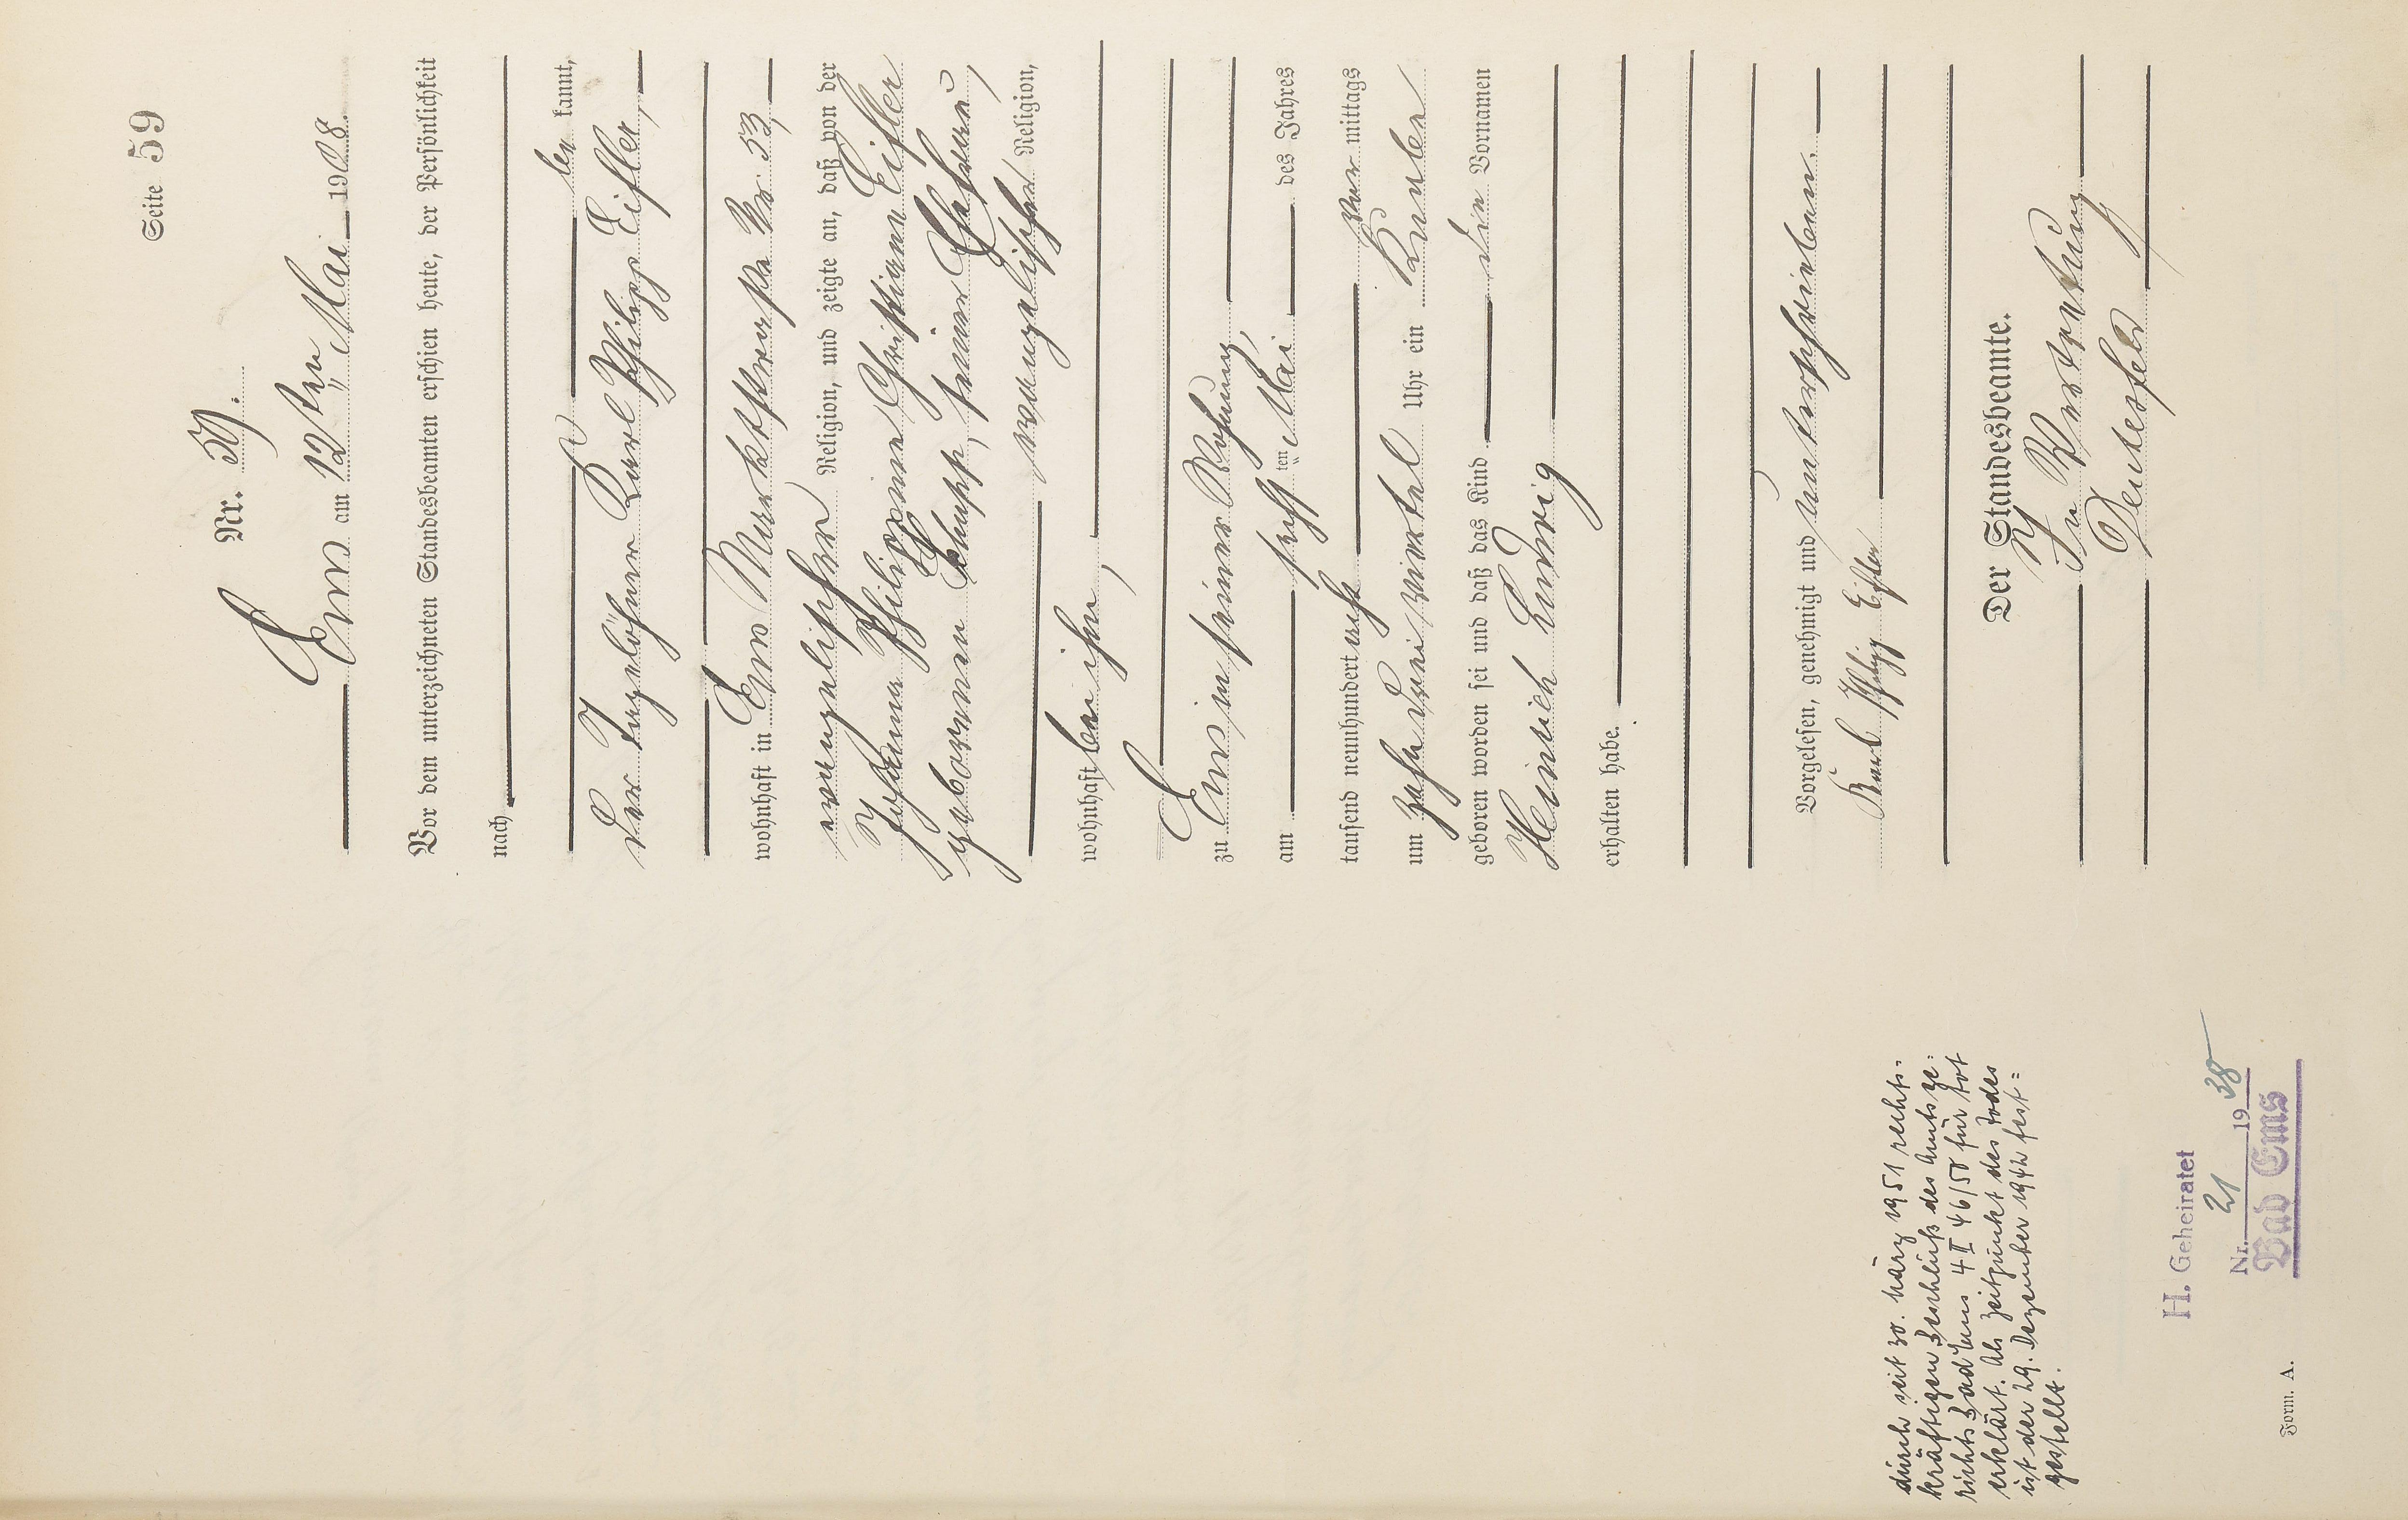 Seite 59
Nr. 59.
Ems am 12ten Mai 1908.
Vor dem unterzeichneten Standesbeamten erschien heute, der Persönlichkeit
nach
be kannt,
der Tagelöhner Karl Philipp Eisler,
wohnhaft in Ems Marktstraße No. 53,
evangelischer Religion, und zeigte an, daß von der
Johanna Philippine Christiane Eisler
geborenen Schupp, seiner Ehefrau,
evangelischer Religion,
wohnhaft bei ihm,
zu Ems in seiner Wohnung,
am sechsten Mai des Jahres
tausend neunhundert acht Vor mittags
um zehn drei viertel Uhr ein Knabe
geboren worden sei und daß das Kind die Vornamen
Heinrich Ludwig
erhalten habe.
Vorgelesen, genehmigt und unterschrieben.
Karl Philipp Eisler
Der Standesbeamte.
In Vertretung
durch seit 30. März 1951 rechts-
kräftigen Beschluß des Amtsge-
richts Bad Ems 4 II 46/50 für tot
erklärt. Als Zeitpunkt des Todes
ist der 29. Dezember 1942 fest=
gestellt.
H. Geheiratet
Nr. 21 1938
Bad Ems
Form. A.